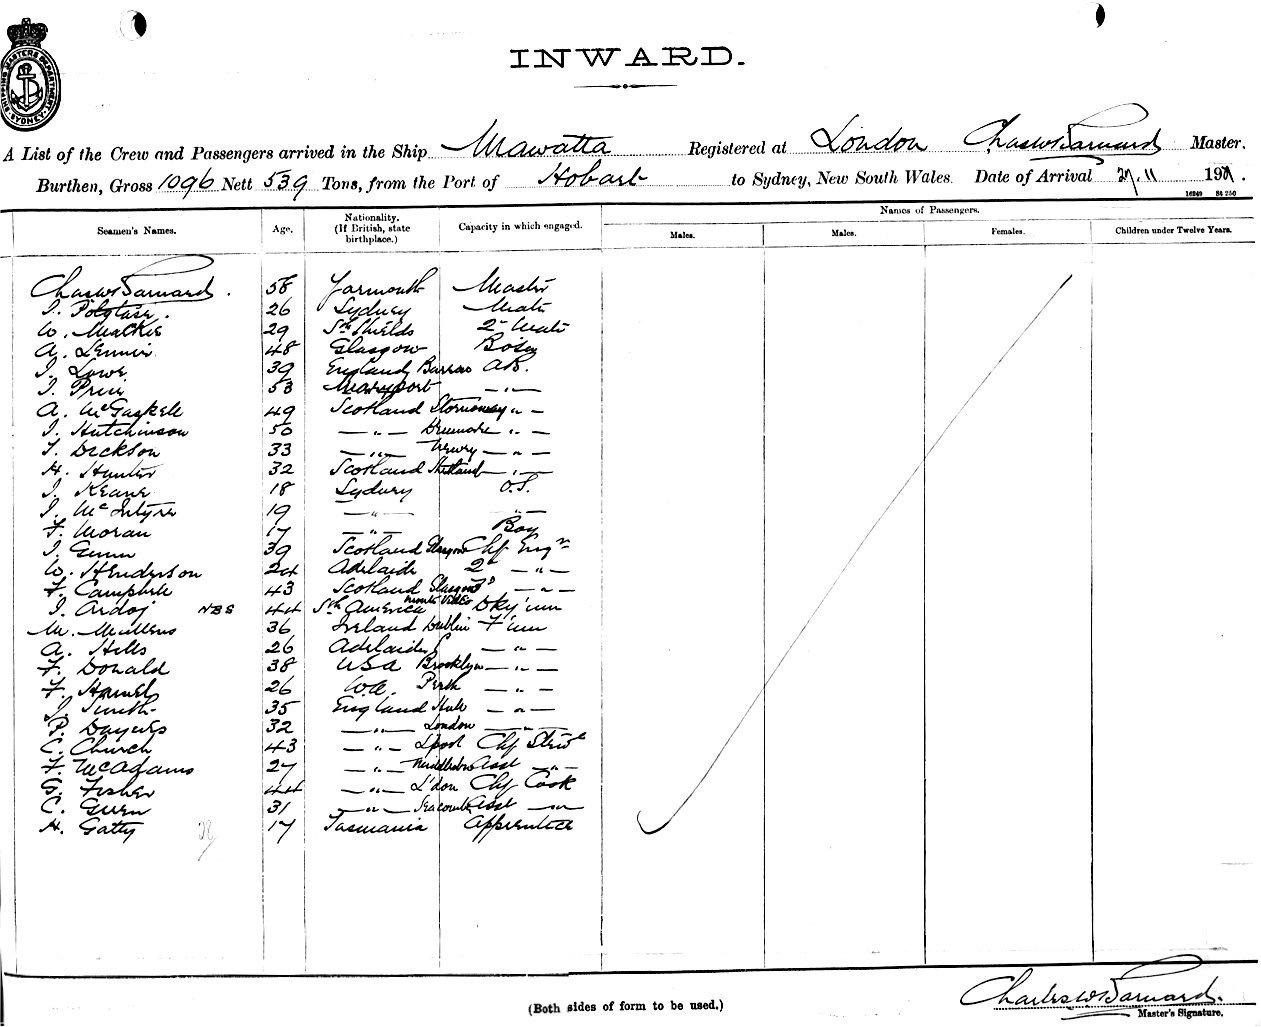 SHIPPING MASTERS DEPARTMENT SYDNEY
INWARD.
A List of the Crew and Passengers arrived in the Ship Mawatta Registered at London Chas W Barnard Master,
Burthen, Gross 1096 Nett 539 Tons, from the Port of Hobart to Sydney, New South Wales. Date of Arrival 27.11 19
16249 St 250
Seamen's Names. Age. Nationality. (If British, state birthplace.) Capacity in which engaged. Names of Passengers.
Males. Males. Females. Children under Twelve Years.
Chas W Barnard. 58 Yarmouth Master
J. Polglase. 26 Sydney Mate
W. Mackie 29 Sth Shields 2nd Mate
A. 48 Glasgow Bosn
J. Lowe 39 England Barrow AB.
J. Price 53 Maryport —"—
A. McGaskell 49 Scotland Stornoway " —
J. Hutchinson 50 —"— —"—
T. Dickson 33 —"— Newry —"—
H. Hunter 32 Scotland Shetland —"—
J. Keane 18 Sydney O.S.
J. McIntyre 19 —"— —"—
F. Moran 17 —"— Boy
J. Gunn 39 Scotland Glasgow Chf Engr
W. Henderson 24 Adelaide 2nd —"—
F. Campbell 43 Scotland Glasgow 3rd —"—
J. Ardoj NBS 44 Sth America Monte Video Dky'man
M. Mullens 36 Ireland Dublin F'man
A. Hills 26 Adelaide —"—
F. Donald 38 USA Brooklyn —"—
F. Hamel 26 W.A. Perth —"—
J. Smith 35 England Hull —"—
P. 32 —"— London —"—
C. Church 43 —"— Lpool Chf Stewd
F. McAdams 27 —"— Middlesboro Asst —"—
G. Fisher 44 —"— L'don Chf Cook
C. Green 31 —"— Seacombe Asst —"—
H. Gatty 17 Tasmania Apprentice
28
Charles W Barnard.
(Both sides of form to be used.) Master's Signature.